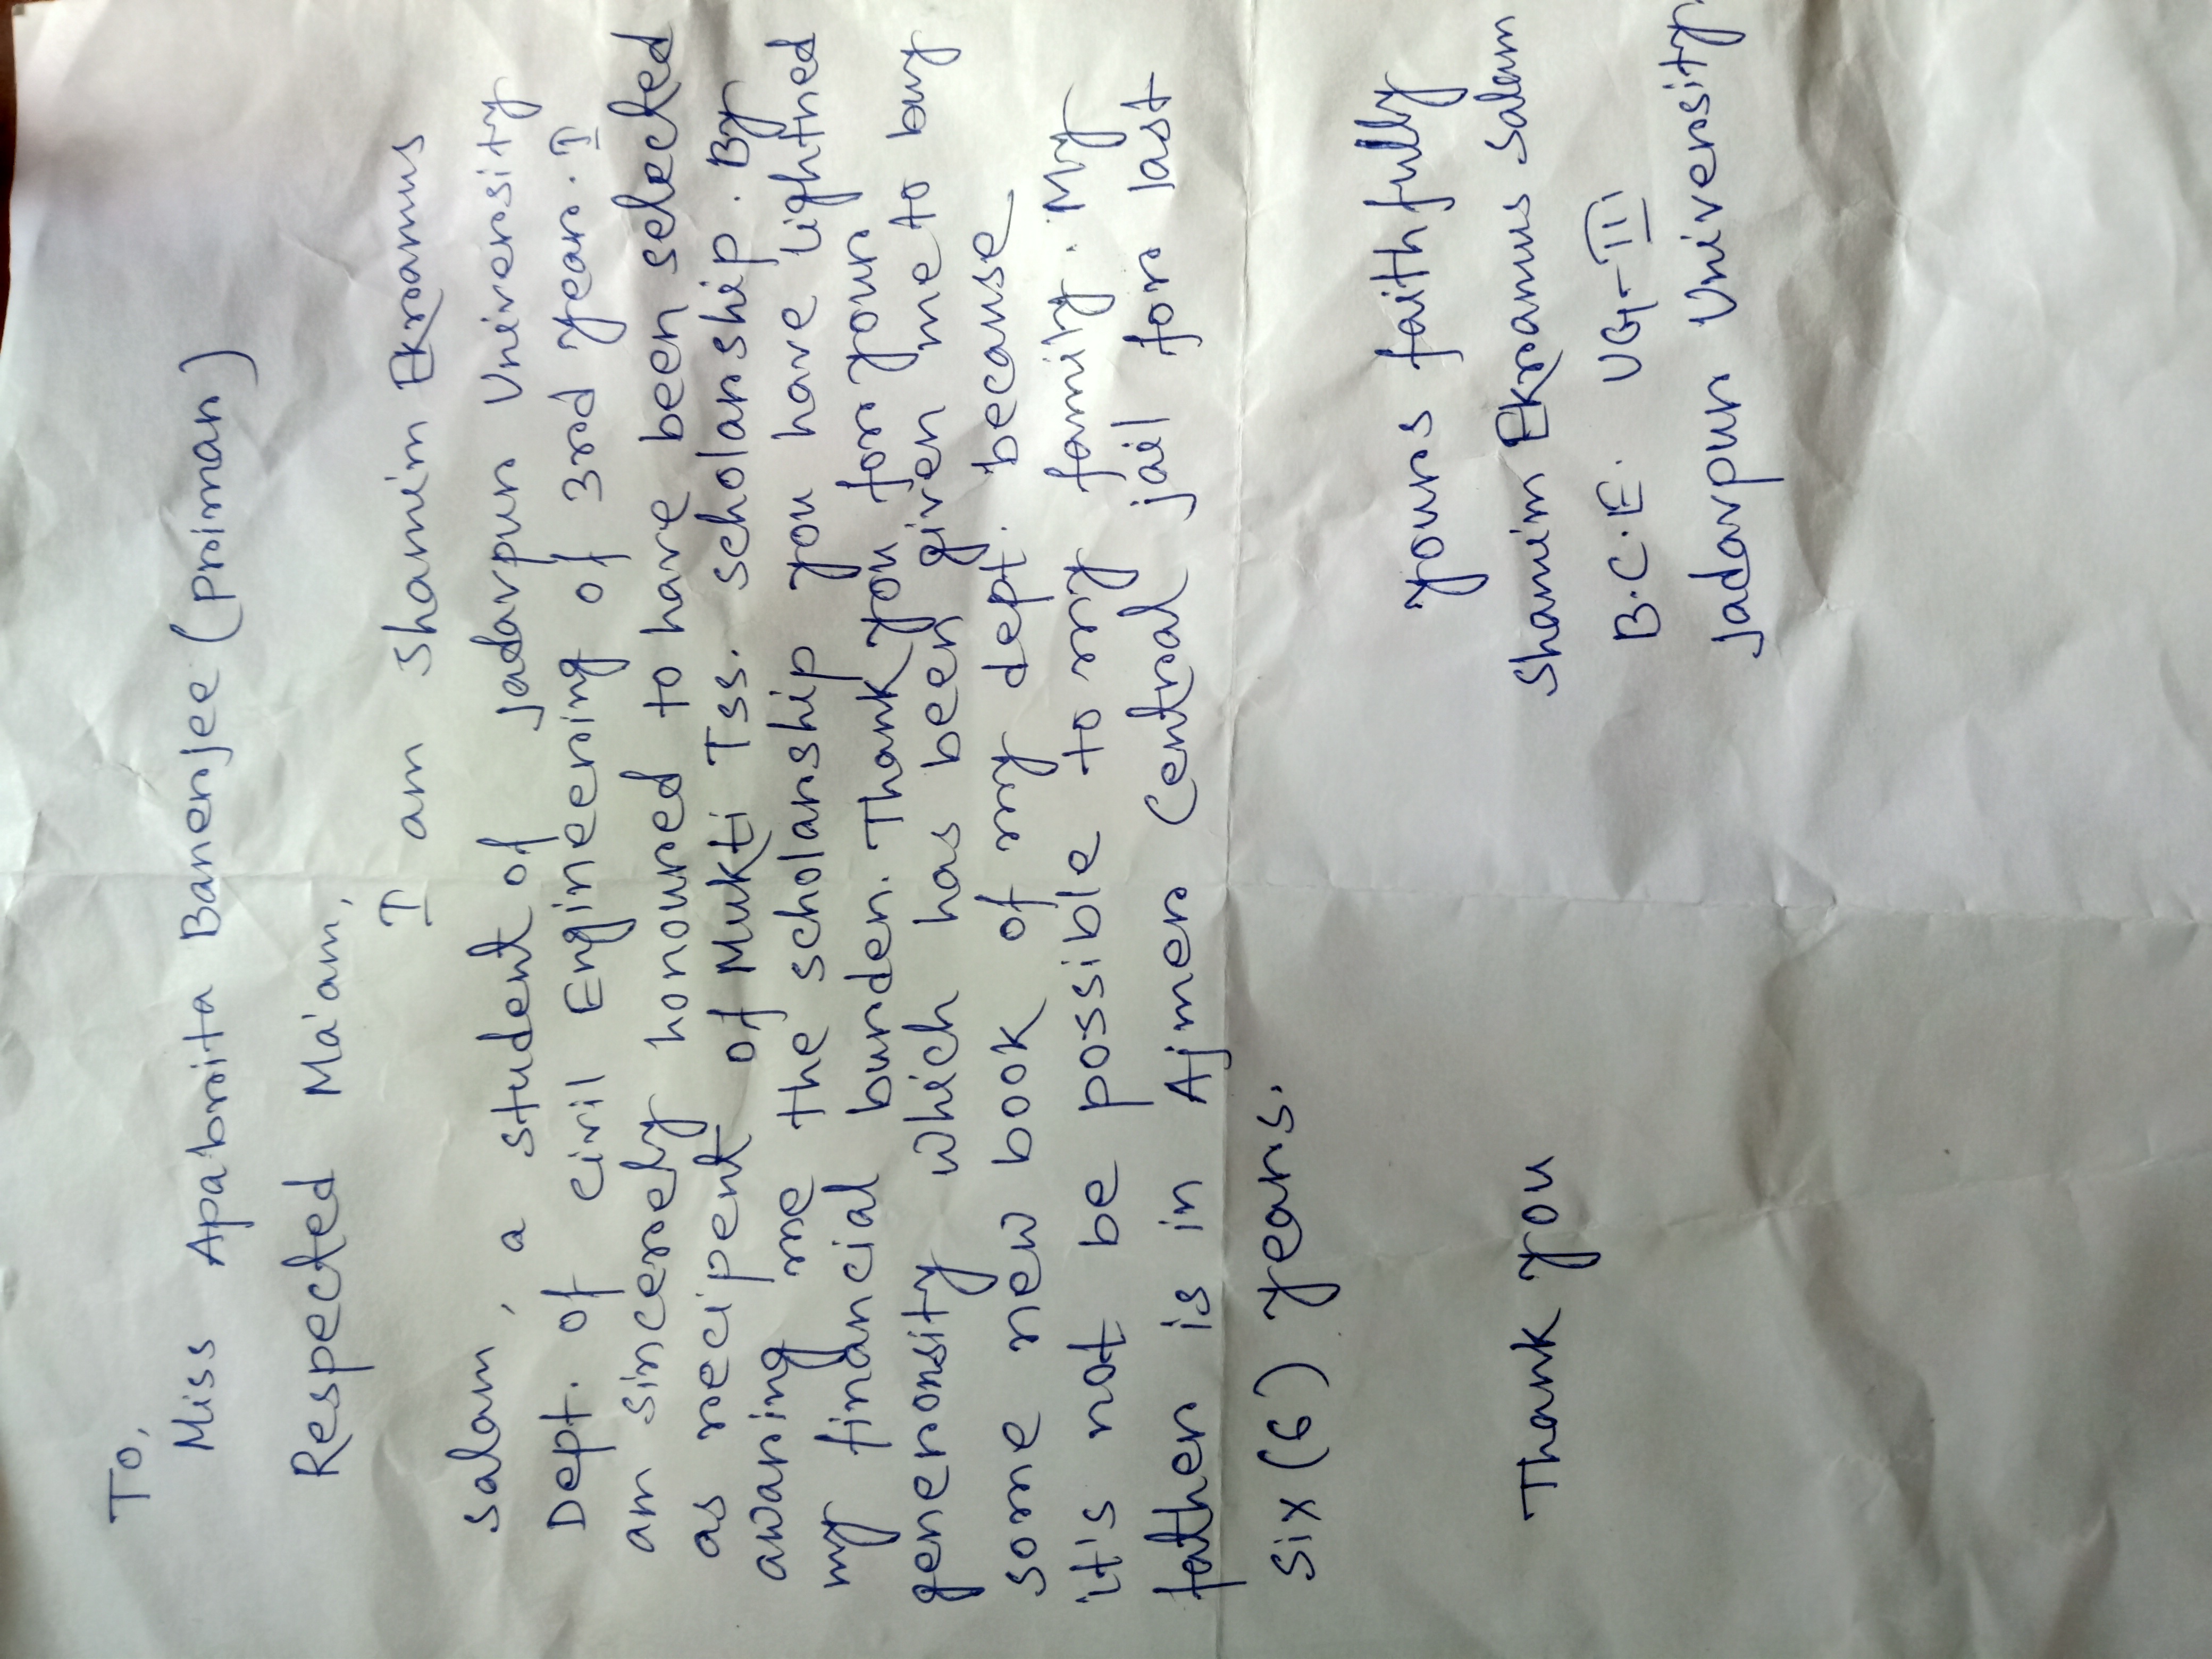 To,
Miss Apabrita Banerjee (Priman)
Respected Ma'am,
I am Shamim Ekramus
Salam, a student of Jadavpur University
Dept. of civil Engineering of 3rd year. I
am sincerely honoured to have been selected
as recipent of Mukti Tss. scholarship. By
awaring me the scholarship you have lightned
my financial burden. Thank you for your
generousity which has been given me to buy
some new book of my dept. because
it's not be possible to my family. My
father is in Ajmer Central jail for last
six (6) years.
Thank you
yours faithfully
Shamim Ekramus Salam
B.C.E. UG-III
Jadavpur University